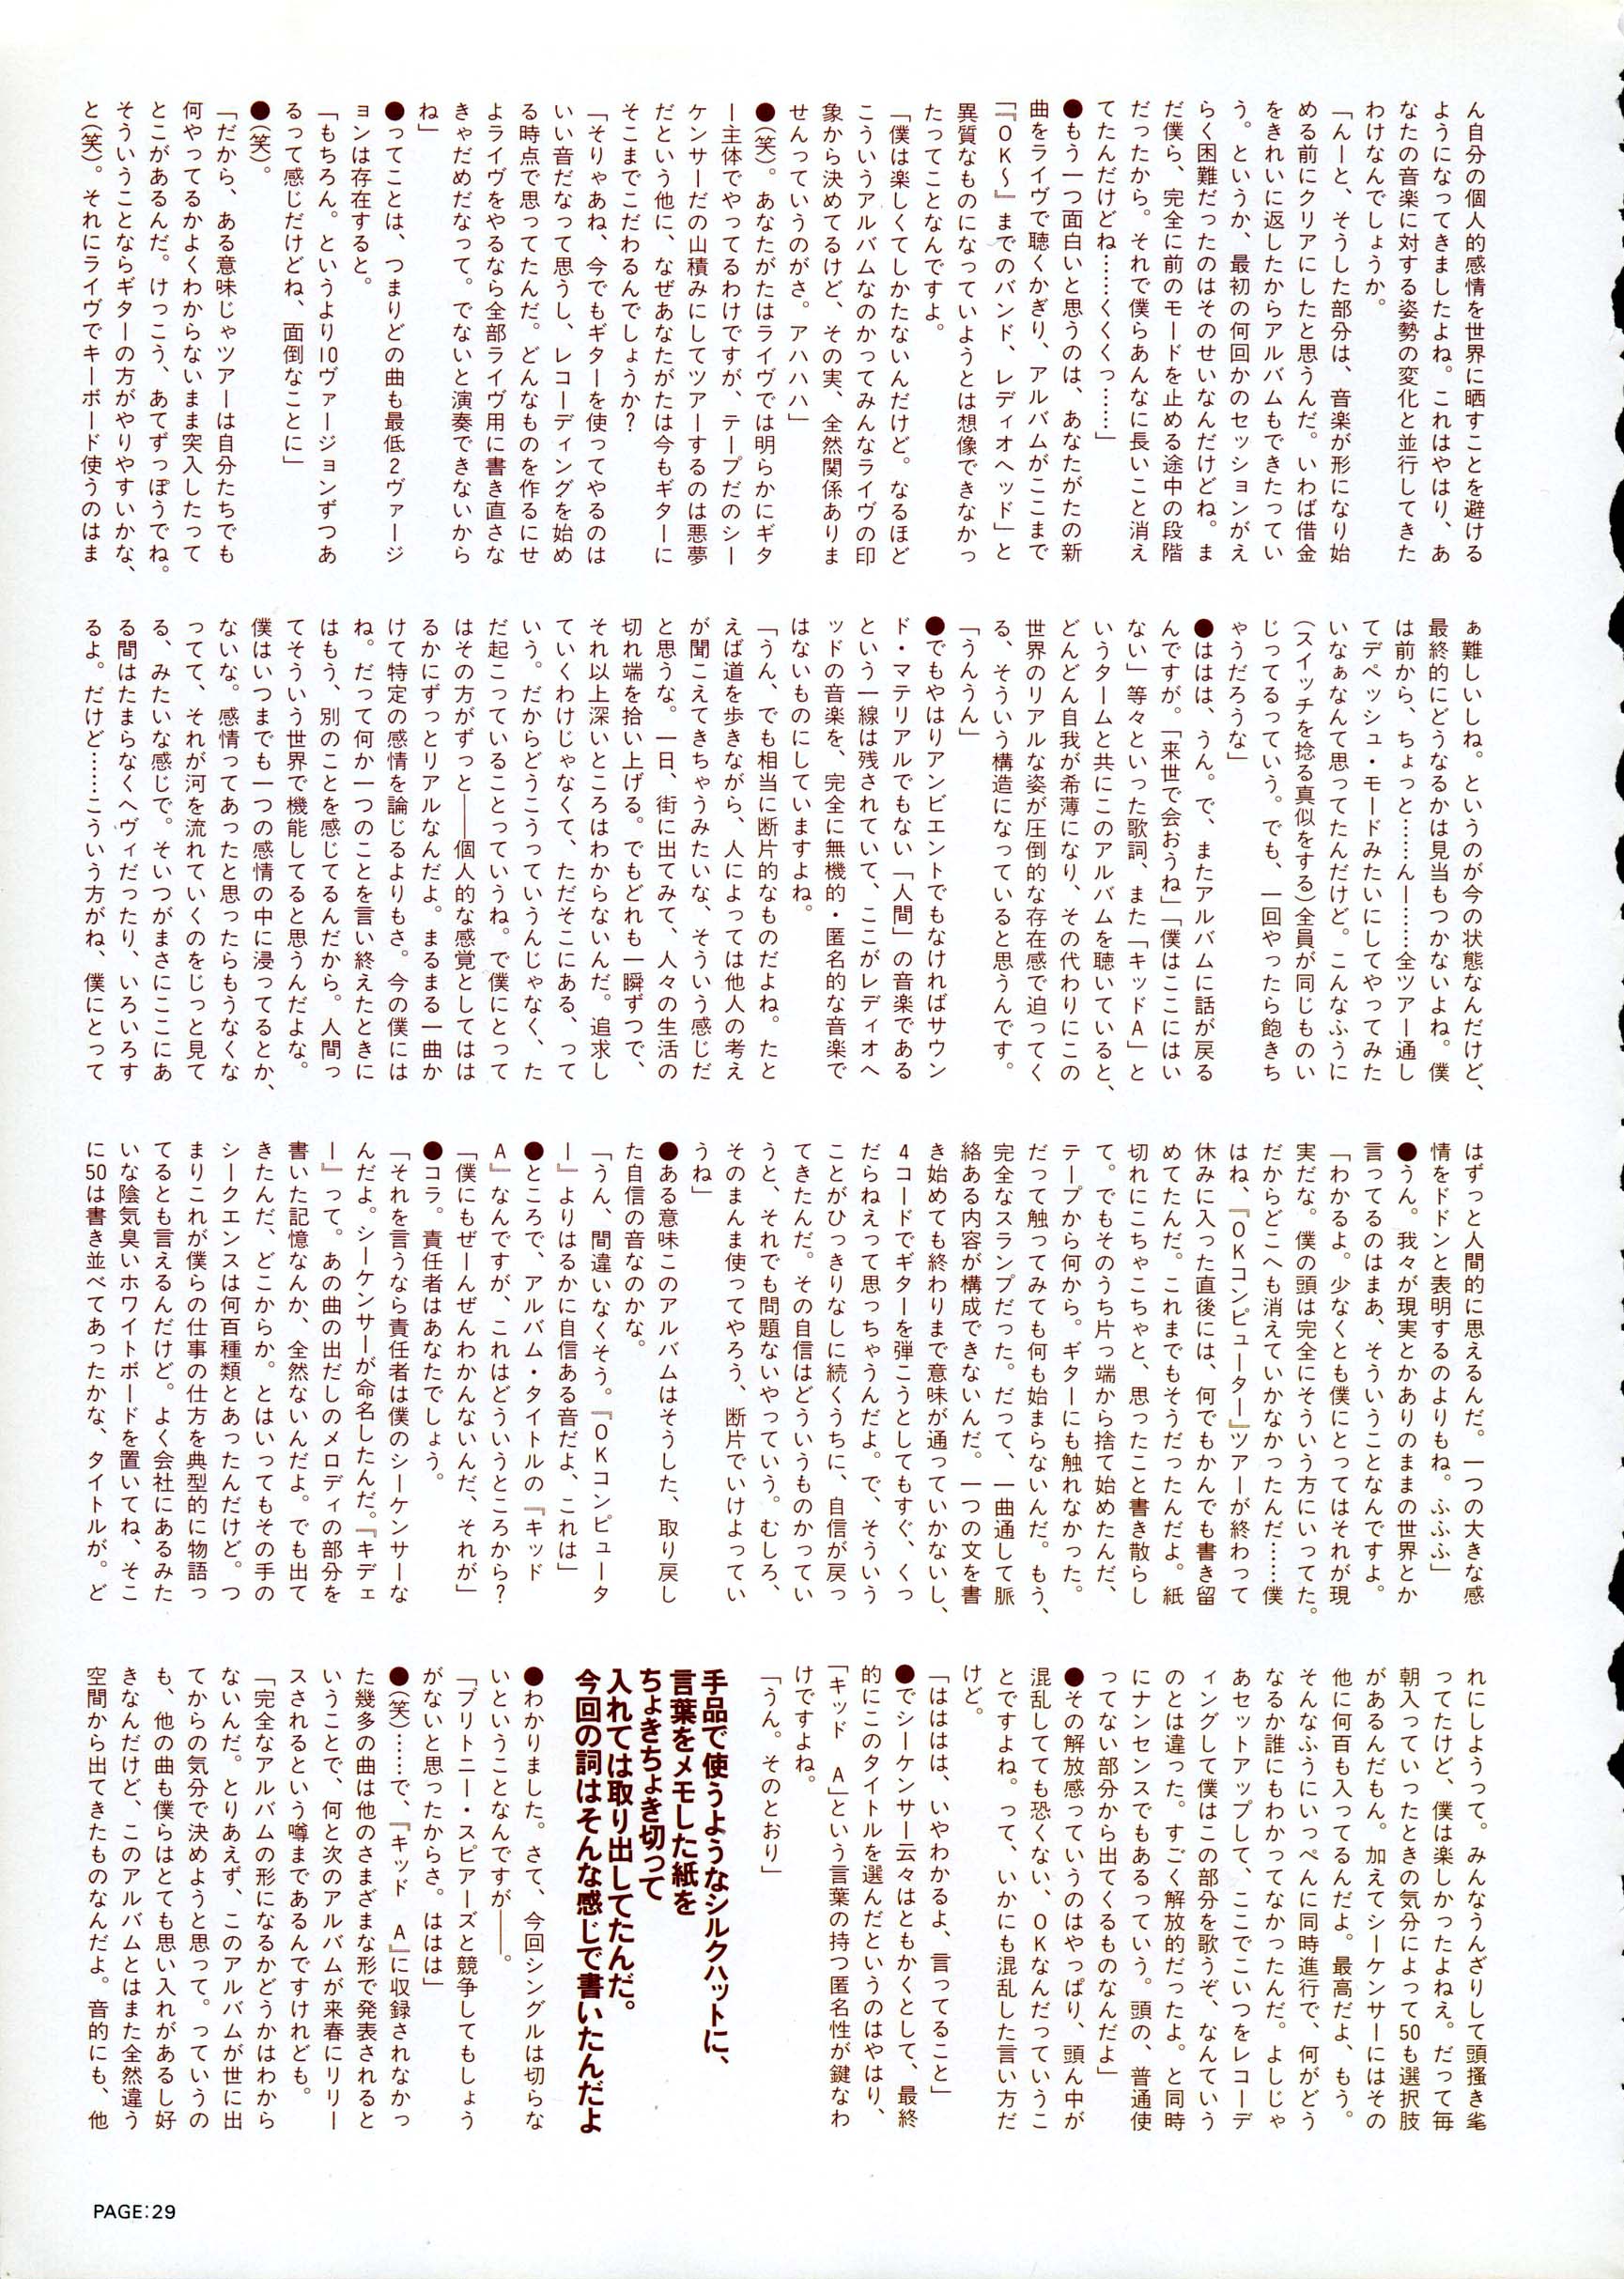 ん自分の個人的感情を世界に晒すことを避ける
ようになってきましたよね。これはやはり、あ
なたの音楽に対する姿勢の変化と並行してきた
わけなんでしょうか。
「んーと、そうした部分は、音楽が形になり始
める前にクリアにしたと思うんだ。いわば借金
をきれいに返したからアルバムもできたってい
う。というか、最初の何回かのセッションがえ
らく困難だったのはそのせいなんだけどね。ま
だ僕ら、完全に前のモードを止める途中の段階
だったから。それで僕らあんなに長いこと消え
てたんだけどね……くくくっ……」
●もう一つ面白いと思うのは、あなたがたの新
曲をライヴで聴くかぎり、アルバムがここまで
『『OK〜』までのバンド、レディオヘッド」と
異質なものになっていようとは想像できなかっ
たってことなんですよ。
「僕は楽しくてしかたないんだけど。なるほど
こういうアルバムなのかってみんなライヴの印
象から決めてるけど、その実、全然関係ありま
せんっていうのがさ。アハハハ」
●(笑)。あなたがたはライヴでは明らかにギタ
ー主体でやってるわけですが、テープだのシー
ケンサーだの山積みにしてツアーするのは悪夢
だという他に、なぜあなたがたは今もギターに
そこまでこだわるんでしょうか?
「そりゃあね、今でもギターを使ってやるのは
いい音だなって思うし、レコーディングを始め
る時点で思ってたんだ。どんなものを作るにせ
よライヴをやるなら全部ライヴ用に書き直さな
きゃだめだなって。でないと演奏できないから
ね」
●ってことは、つまりどの曲も最低2ヴァージ
ョンは存在すると。
「もちろん。というより10ヴァージョンずつあ
るって感じだけどね、面倒なことに」
●(笑)。
「だから、ある意味じゃツアーは自分たちでも
何やってるかよくわからないまま突入したって
とこがあるんだ。けっこう、あてずっぽうでね。
そういうことならギターの方がやりやすいかな、
と(笑)。それにライヴでキーボード使うのはま
ぁ難しいしね。というのが今の状態なんだけど、
最終的にどうなるかは見当もつかないよね。僕
は前から、ちょっと……んー……全ツアー通し
てデペッシュ・モードみたいにしてやってみた
いなぁなんて思ってたんだけど。こんなふうに
(スイッチを捻る真似をする)全員が同じものい
じってるっていう。でも、一回やったら飽きち
ゃうだろうな」
●ははは、うん。で、またアルバムに話が戻る
んですが。「来世で会おうね」「僕はここにはい
ない」等々といった歌詞、また「キッドA」と
いうタームと共にこのアルバムを聴いていると、
どんどん自我が希薄になり、その代わりにこの
世界のリアルな姿が圧倒的な存在感で迫ってく
る、そういう構造になっていると思うんです。
「うんうん」
●でもやはりアンビエントでもなければサウン
ド・マテリアルでもない「人間」の音楽である
という一線は残されていて、ここがレディオヘ
ッドの音楽を、完全に無機的・匿名的な音楽で
はないものにしていますよね。
「うん、でも相当に断片的なものだよね。たと
えば道を歩きながら、人によっては他人の考え
が聞こえてきちゃうみたいな、そういう感じだ
と思うな。一日、街に出てみて、人々の生活の
切れ端を拾い上げる。でもどれも一瞬ずつで、
それ以上深いところはわからないんだ。追求し
ていくわけじゃなくて、ただそこにある、って
いう。だからどうこうっていうんじゃなく、た
だ起こっていることっていうね。で僕にとって
はその方がずっと――個人的な感覚としてはは
るかにずっとリアルなんだよ。まるまる一曲か
けて特定の感情を論じるよりもさ。今の僕には
ね。だって何か一つのことを言い終えたときに
はもう、別のことを感じてるんだから。人間っ
てそういう世界で機能してると思うんだよな。
僕はいつまでも一つの感情の中に浸ってるとか、
ないな。感情ってあったと思ったらもうなくな
ってて、それが河を流れていくのをじっと見て
る、みたいな感じで。そいつがまさにここにあ
る間はたまらなくヘヴィだったり、いろいろす
るよ。だけど……こういう方がね、僕にとって
はずっと人間的に思えるんだ。一つの大きな感
情をドドンと表明するのよりもね。ふふふ」
●うん。我々が現実とかありのままの世界とか
言ってるのはまあ、そういうことなんですよ。
「わかるよ。少なくとも僕にとってはそれが現
実だな。僕の頭は完全にそういう方にいってた。
だからどこへも消えていかなかったんだ……僕
はね、『OKコンピューター』ツアーが終わって
休みに入った直後には、何でもかんでも書き留
めてたんだ。これまでもそうだったんだよ。紙
切れにこちゃこちゃと、思ったこと書き散らし
て。でもそのうち片っ端から捨て始めたんだ、
テープから何から。ギターにも触れなかった。
だって触ってみても何も始まらないんだ。もう、
完全なスランプだった。だって、一曲通して脈
絡ある内容が構成できないんだ。一つの文を書
き始めても終わりまで意味が通っていかないし、
4コードでギターを弾こうとしてもすぐ、くっ
だらねえって思っちゃうんだよ。で、そういう
ことがひっきりなしに続くうちに、自信が戻っ
てきたんだ。その自信はどういうものかってい
うと、それでも問題ないやっていう。むしろ、
そのまんま使ってやろう、断片でいけよってい
うね」
●ある意味このアルバムはそうした、取り戻し
た自信の音なのかな。
「うん、間違いなくそう。『OKコンピュータ
ー』よりはるかに自信ある音だよ、これは」
●ところで、アルバム・タイトルの『キッド
A』なんですが、これはどういうところから?
「僕にもぜーんぜんわかんないんだ、それが」
●コラ。責任者はあなたでしょう。
「それを言うなら責任者は僕のシーケンサーな
んだよ。シーケンサーが命名したんだ。『キデェ
ー』って。あの曲の出だしのメロディの部分を
書いた記憶なんか、全然ないんだよ。でも出て
きたんだ、どこからか。とはいってもその手の
シークエンスは何百種類とあったんだけど。つ
まりこれが僕らの仕事の仕方を典型的に物語っ
てるとも言えるんだけど。よく会社にあるみた
いな陰気臭いホワイトボードを置いてね、そこ
に50は書き並べてあったかな、タイトルが。ど
れにしようって。みんなうんざりして頭掻き毟
ってたけど、僕は楽しかったよねえ。だって毎
朝入っていったときの気分によって50も選択肢
があるんだもん。加えてシーケンサーにはその
他に何百も入ってるんだよ。最高だよ、もう。
そんなふうにいっぺんに同時進行で、何がどう
なるか誰にもわかってなかったんだ。よしじゃ
あセットアップして、ここでこいつをレコーデ
ィングして僕はこの部分を歌うぞ、なんていう
のとは違った。すごく解放的だったよ。と同時
にナンセンスでもあるっていう。頭の、普通使
ってない部分から出てくるものなんだよ」
●その解放感っていうのはやっぱり、頭ん中が
混乱してても恐くない、OKなんだっていうこ
とですよね。って、いかにも混乱した言い方だ
けど。
「はははは、いやわかるよ、言ってること」
●でシーケンサー云々はともかくとして、最終
的にこのタイトルを選んだというのはやはり、
「キッド A」という言葉の持つ匿名性が鍵なわ
けですよね。
「うん。そのとおり」
手品で使うようなシルクハットに、
言葉をメモした紙を
ちょきちょき切って
入れては取り出してたんだ。
今回の詞はそんな感じで書いたんだよ
●わかりました。さて、今回シングルは切らな
いということなんですが――。
「ブリトニー・スピアーズと競争してもしょう
がないと思ったからさ。ははは」
●(笑)……で、『キッド A』に収録されなかっ
た幾多の曲は他のさまざまな形で発表されると
いうことで、何と次のアルバムが来春にリリー
スされるという噂まであるんですけれども。
「完全なアルバムの形になるかどうかはわから
ないんだ。とりあえず、このアルバムが世に出
てからの気分で決めようと思って。っていうの
も、他の曲も僕らはとても思い入れがあるし好
きなんだけど、このアルバムとはまた全然違う
空間から出てきたものなんだよ。音的にも、他
PAGE:29